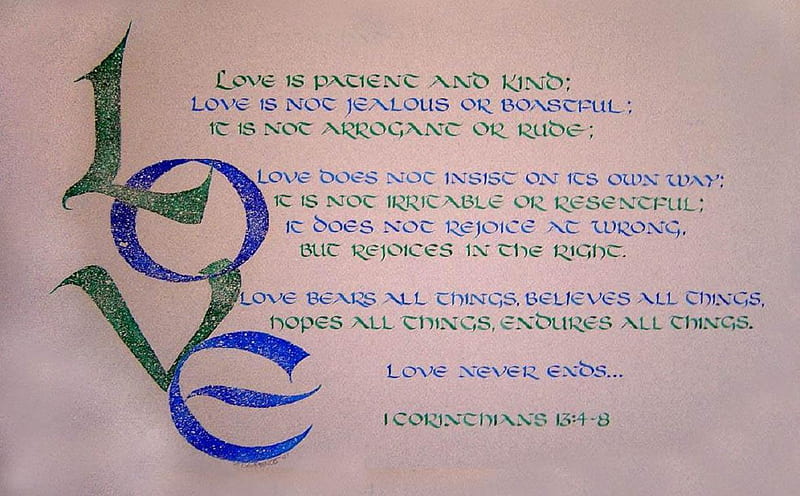 LOVE
Love is patient and kind;
Love is not jealous or boastful;
it is not arrogant or rude;
Love does not insist on its own way;
it is not irritable or resentful;
it does not rejoice at wrong,
but rejoices in the right.
Love bears all things, believes all things,
hopes all things, endures all things.
Love never ends...
1 Corinthians 13:4-8